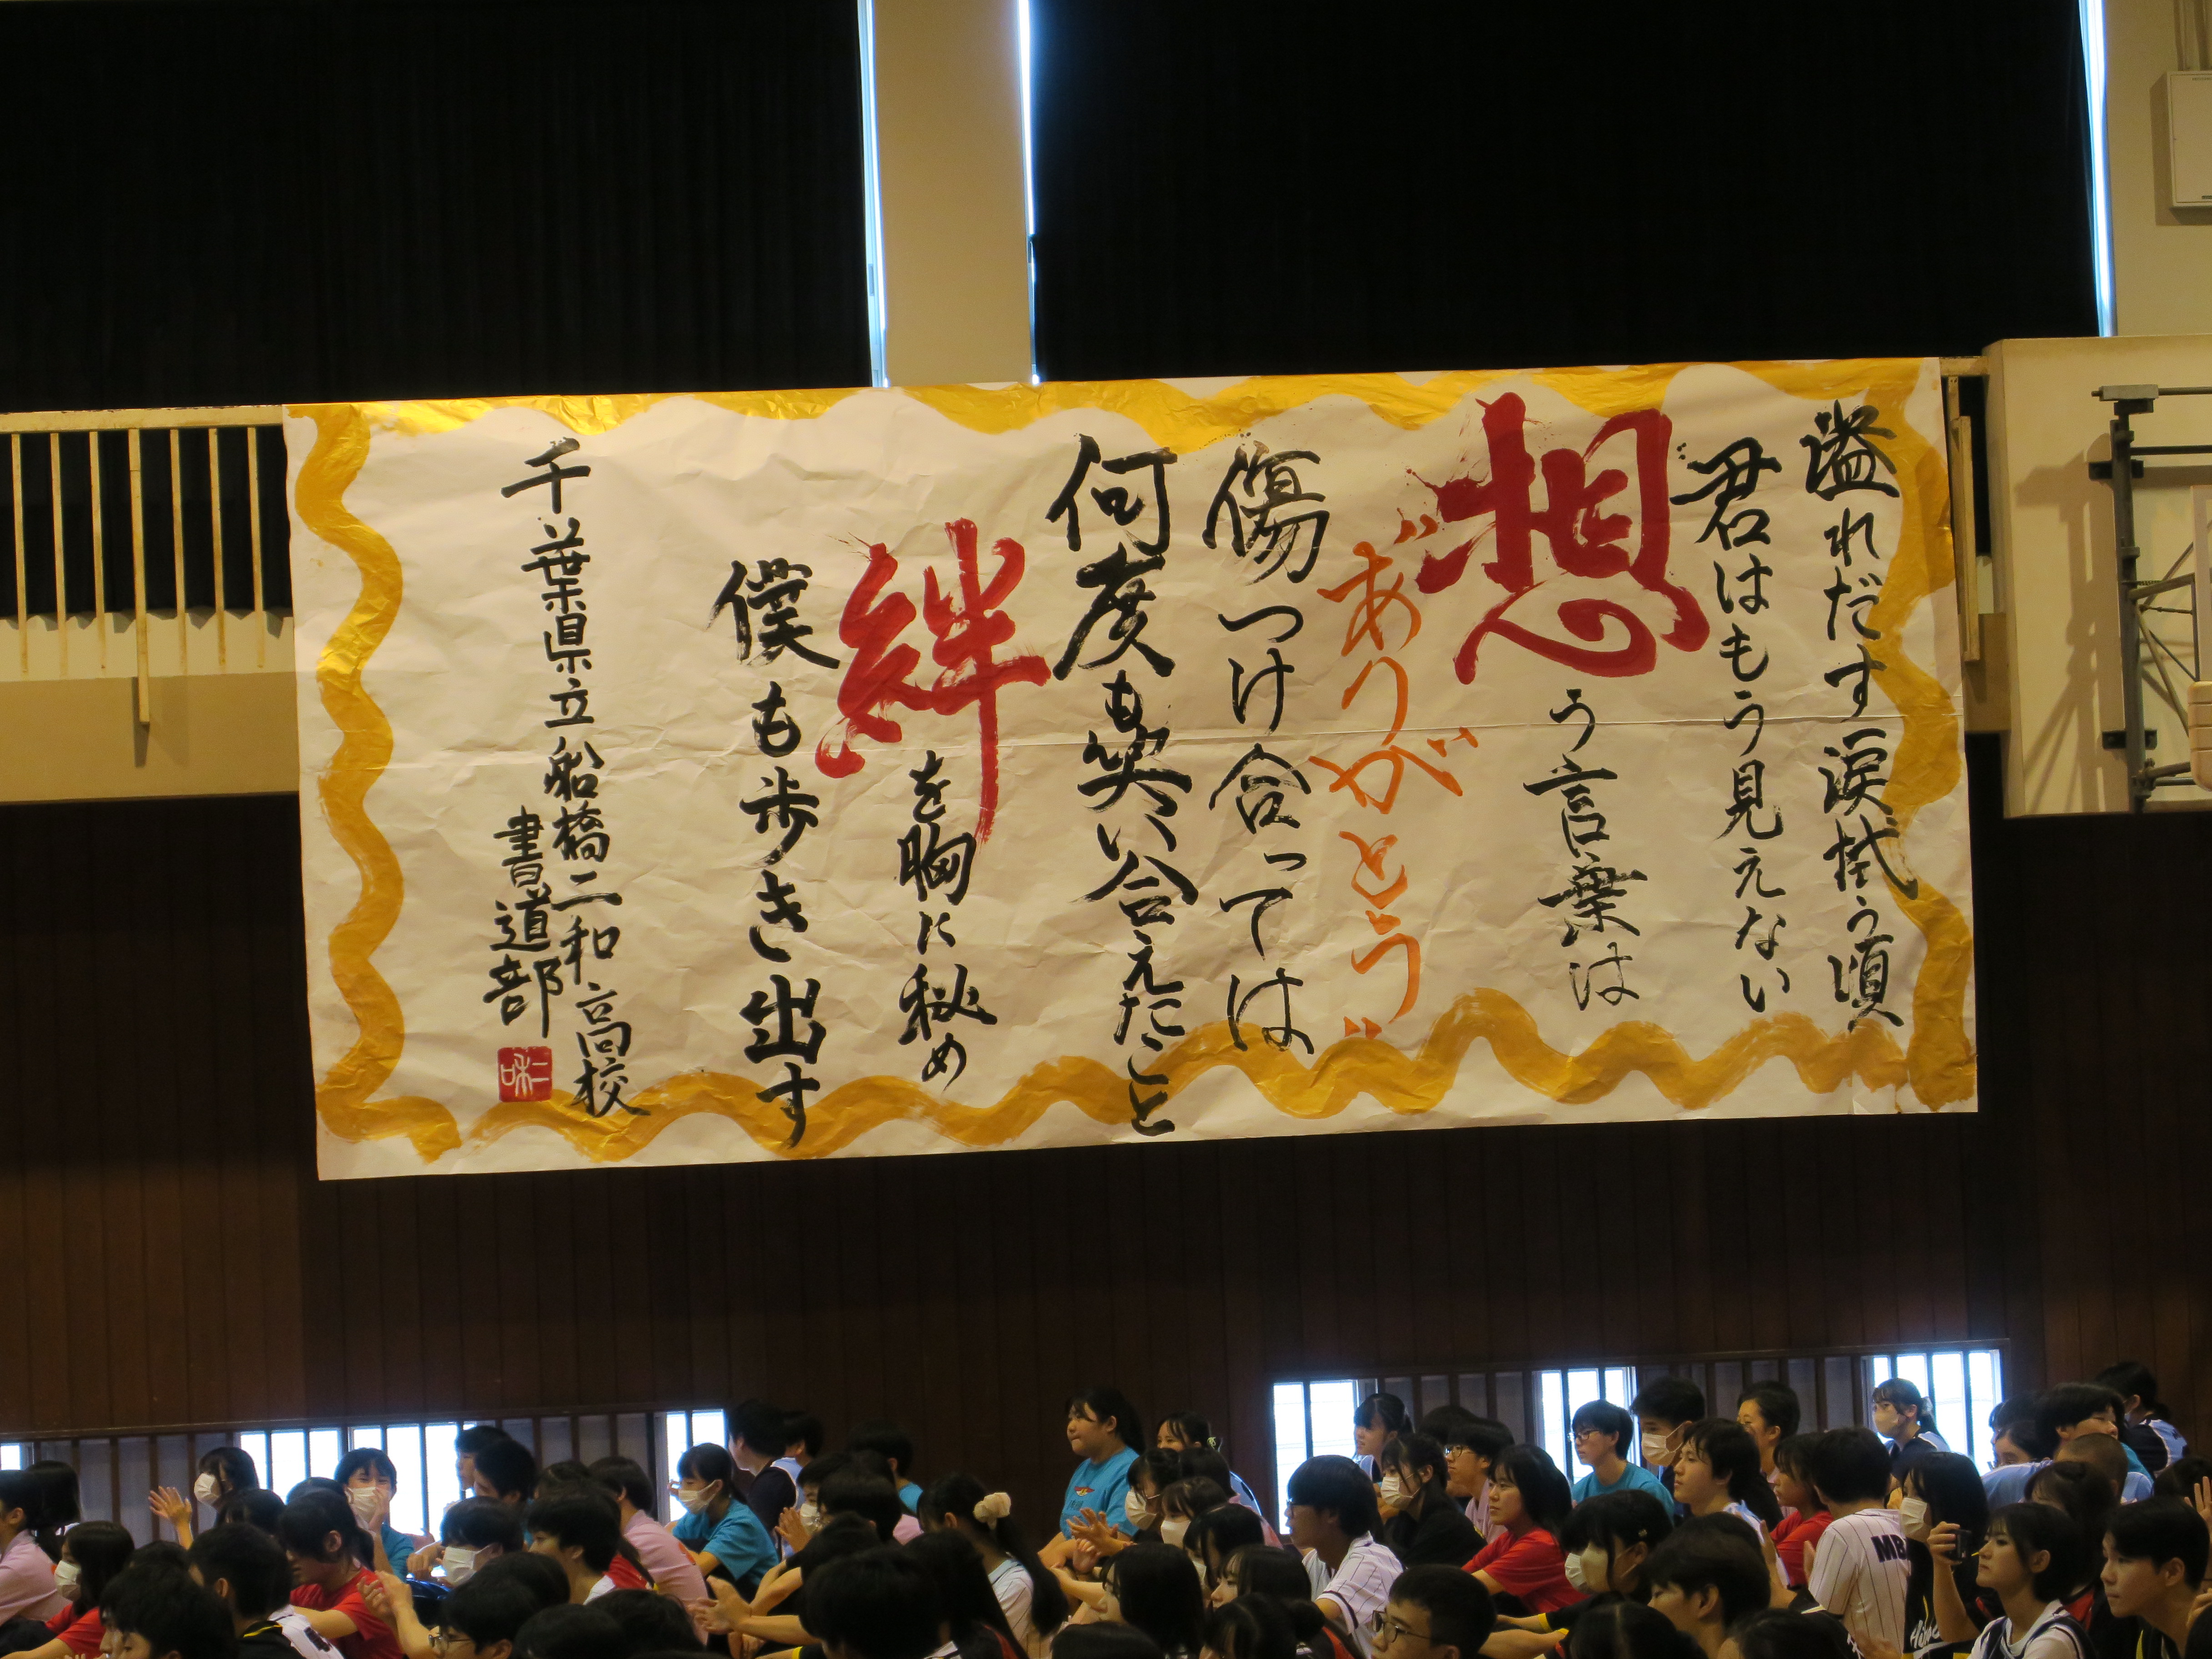 溢れだす涙拭う頃
君はもう見えない
想う言葉は
"ありがとう"
傷つけ合っては
何度も笑い合えたこと
絆を胸に秘め
僕も歩き出す
千葉県立船橋二和高校
書道部
二和